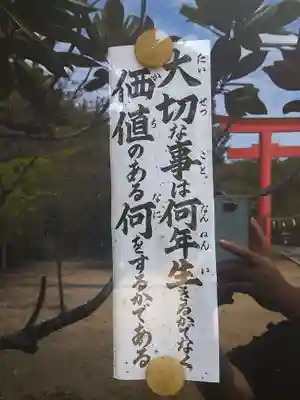 たい せつ こと なん ねん い
大切な事は何年生きるかでなく
か ち なに
価値のある何をするかである